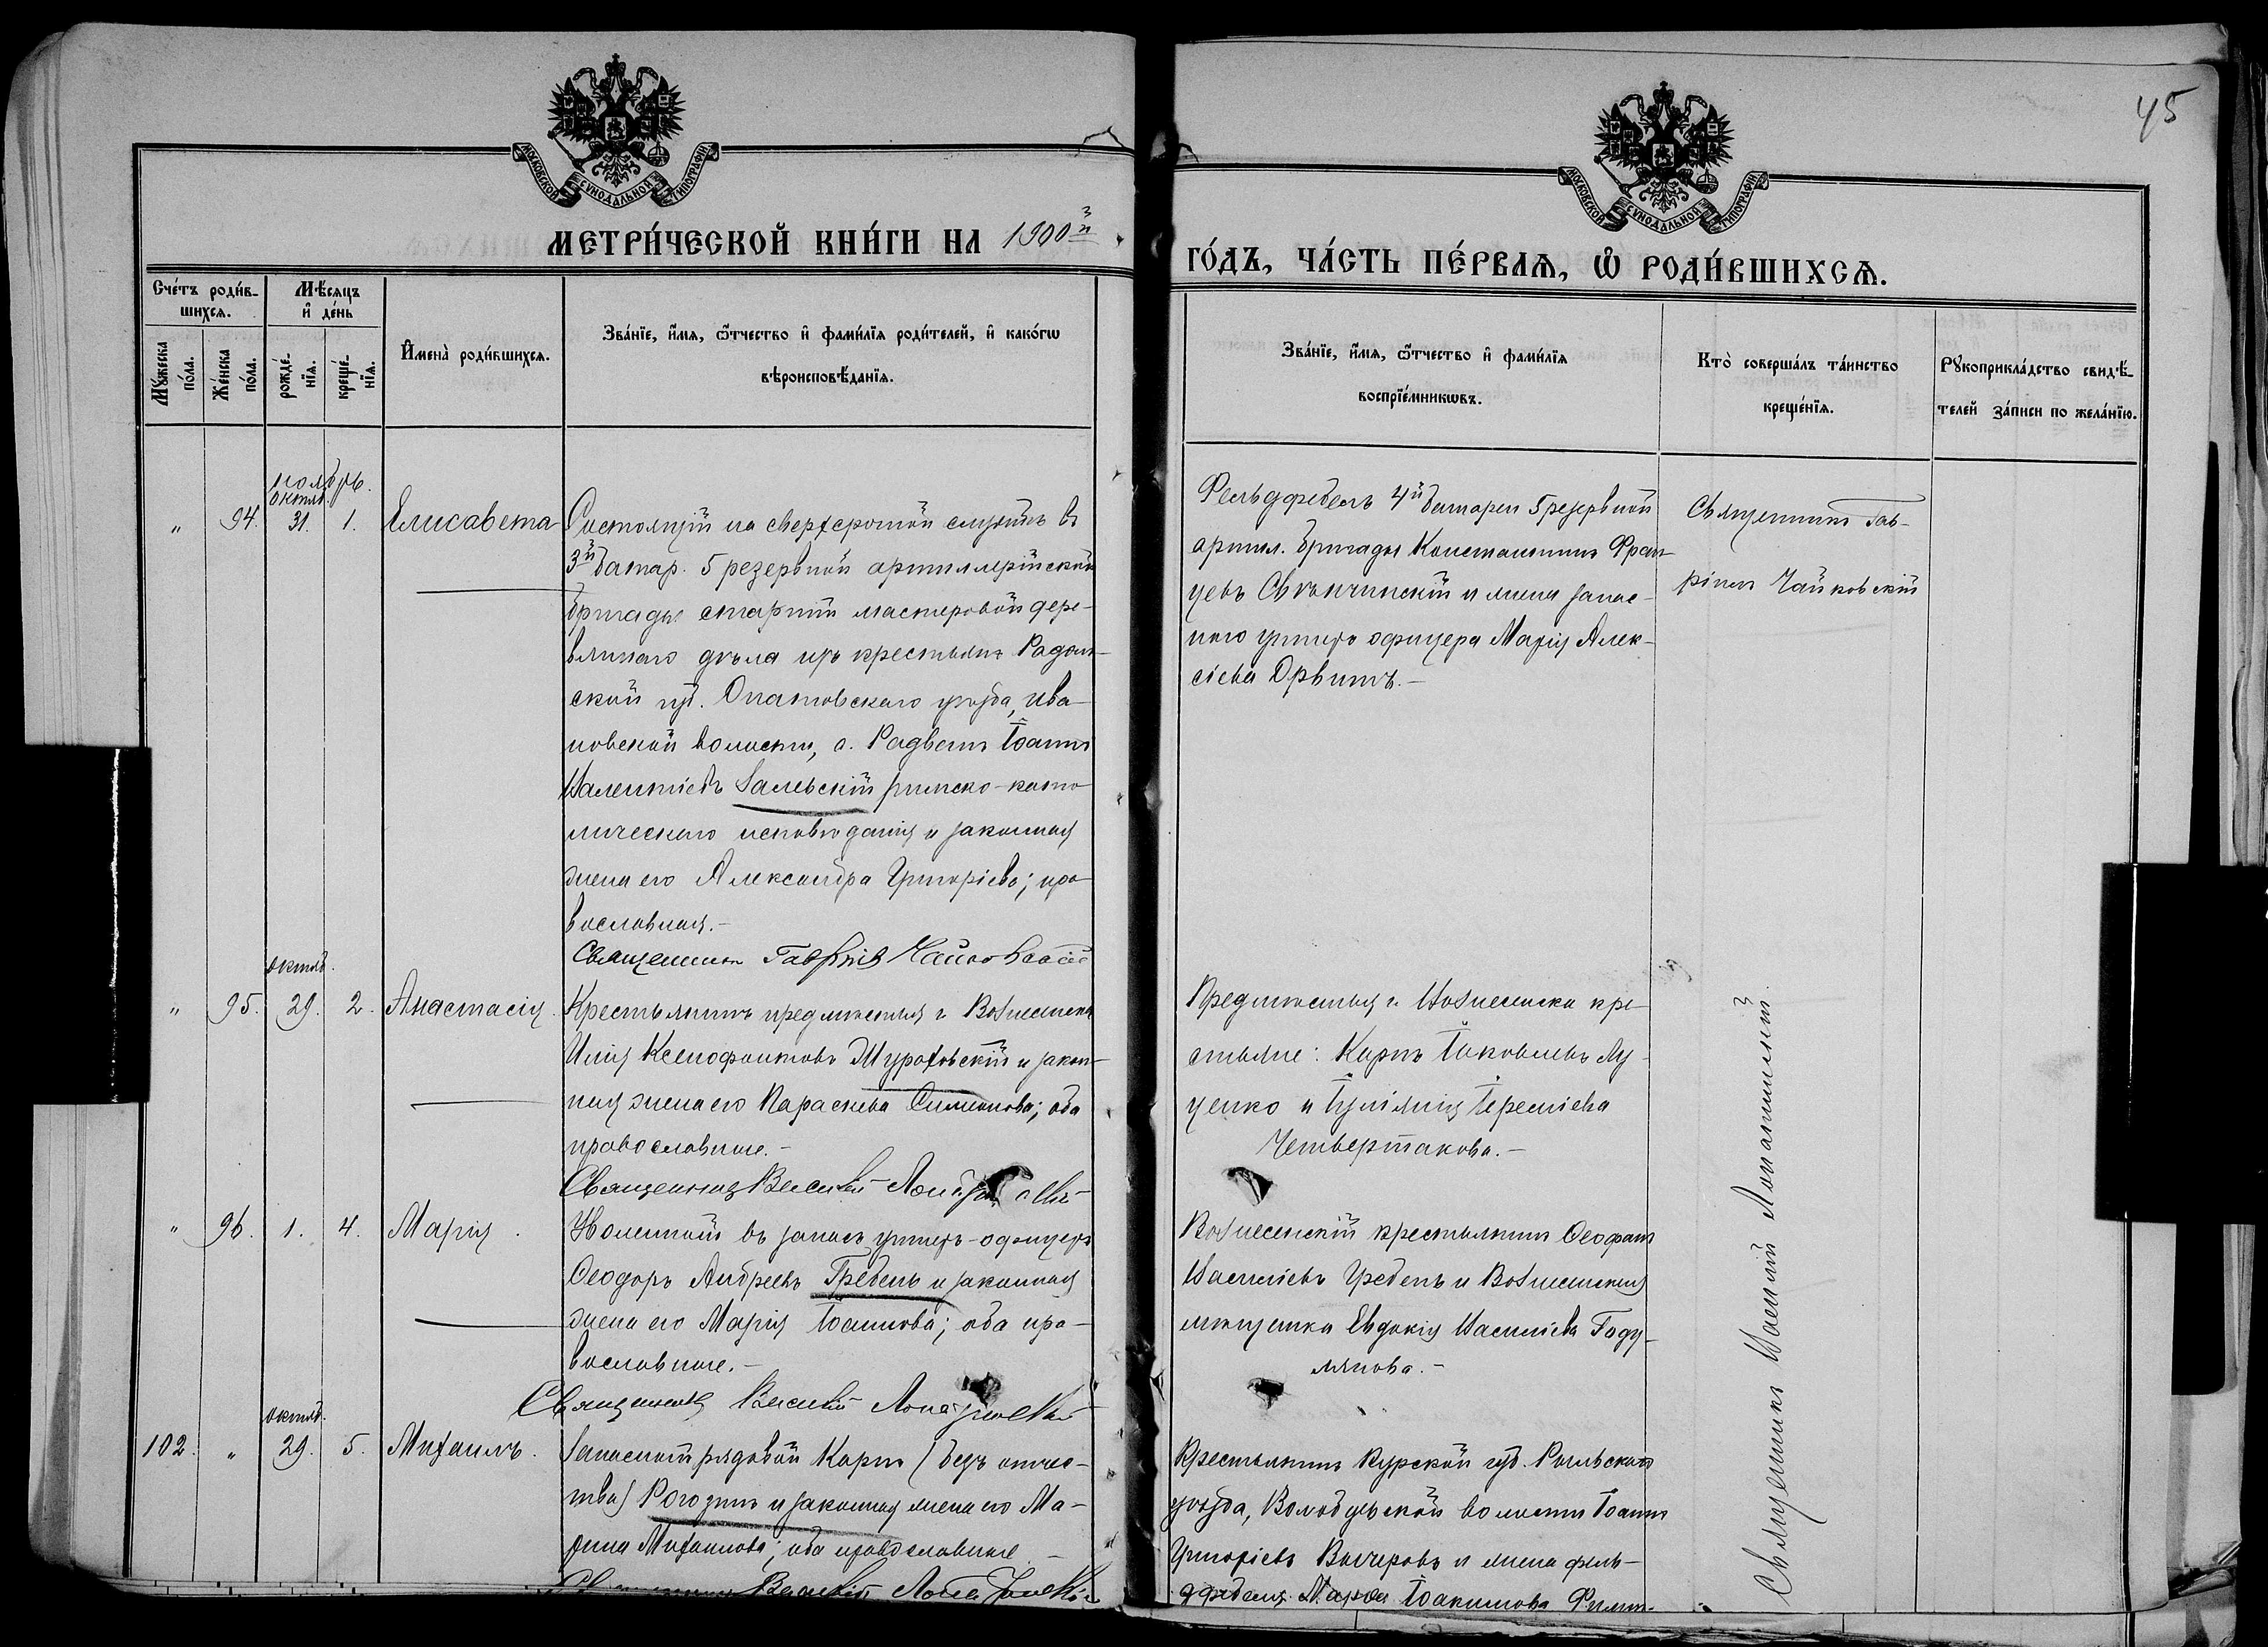 45
МОСКОВСКОЙ СѴНОДАЛЬНОЙ ТИПОГРАФІИ
МОСКОВСКОЙ СѴНОДАЛЬНОЙ ТИПОГРАФІИ
МЕТРИ́ЧЕСКОЙ КНИ́ГИ НА 1900й
ГО́ДЪ, ЧА́СТЬ ПЕ́РВАѦ, Ѡ҆ РОДИ́ВШИХСѦ.
Сче́тъ роди́в-
шихсѧ.
Мѣ́сяцъ
и҆ де́нь
Мꙋ́жеска
по́ла.
Же́нска
по́ла.
рожде́-
нїѧ.
креще́-
нїѧ.
И҆мена̀ роди́вшихсѧ.
Зва́нїе, и҆́мѧ, ѻ҆́тчество и҆ фами́лїѧ роди́телей, и҆ како́гѡ
вѣроисповѣ́данїѧ.
Зва́нїе, и҆́мѧ, ѻ҆́тчество и҆ фами́лїѧ
воспрїе́мникѡвъ.
Кто̀ соверша́лъ та́инство
креще́нїѧ.
Рꙋкоприкла́дство свидѣ́-
телей за́писи по жела́нїю.
ноябрь.
октяб.
" 94. 31. 1. Елисавета
Состоящій на сверхсрочной службѣ въ
3й батар. 5 резервной артиллерійской
бригады старшій мастеровой дере-
вяннаго дѣла изъ крестьянъ Радом-
ской губ. Опатовскаго уѣзда, Ива-
новской волости, д. Іоаннъ
Валентіевъ Залевскій римско-като-
лическаго исповѣданія и законная
жена его Александра Григоріева; пра-
вославная.-
Священникъ Гавріилъ Чайковскій
Фельдфебель 4й батареи 5 резервной
артил. бригады Константинъ Фран-
цевъ и жена запас-
наго унтеръ офицера Марія Алек-
сіева
Священникъ Гав-
ріилъ Чайковскій
октяб.
" 95. 29. 2. Анастасія.
Крестьянинъ предмѣстья г. Вознесенска
Илія Ксенофонтовъ Жураховскій и закон-
ная жена его Параскева Симеонова; оба
православные.-
Священникъ Василій
Предмѣстья г. Вознесенска кре-
стьяне: Карпъ Іаковлевъ Лу-
ценко и Іуліанія
Четвертакова.-
" 96. 1. 4. Марія.
Уволенный въ запасъ унтеръ-офицеръ
Ѳеодоръ Андреевъ Гребень и законная
жена его Марія Іоаннова; оба пра-
вославные.-
Священникъ Василій
Вознесенскій крестьянинъ Ѳеофанъ
Василіевъ Гребень и Вознесенская
мѣщанка Евдокія Василіева Году-
лянова.-
октяб.
102. " 29. 5. Михаилъ.
Запасной рядовой Карпъ (безъ отчес-
тва) Рогозинъ и законная жена его Ма-
рина Михаилова; оба православные.-
Василій
Крестьянинъ Курской губ. Рыльскаго
уѣзда, волости Іоаннъ
Григоріевъ и жена фель-
дфебеля Марѳа Іоакимова
Священникъ Василій